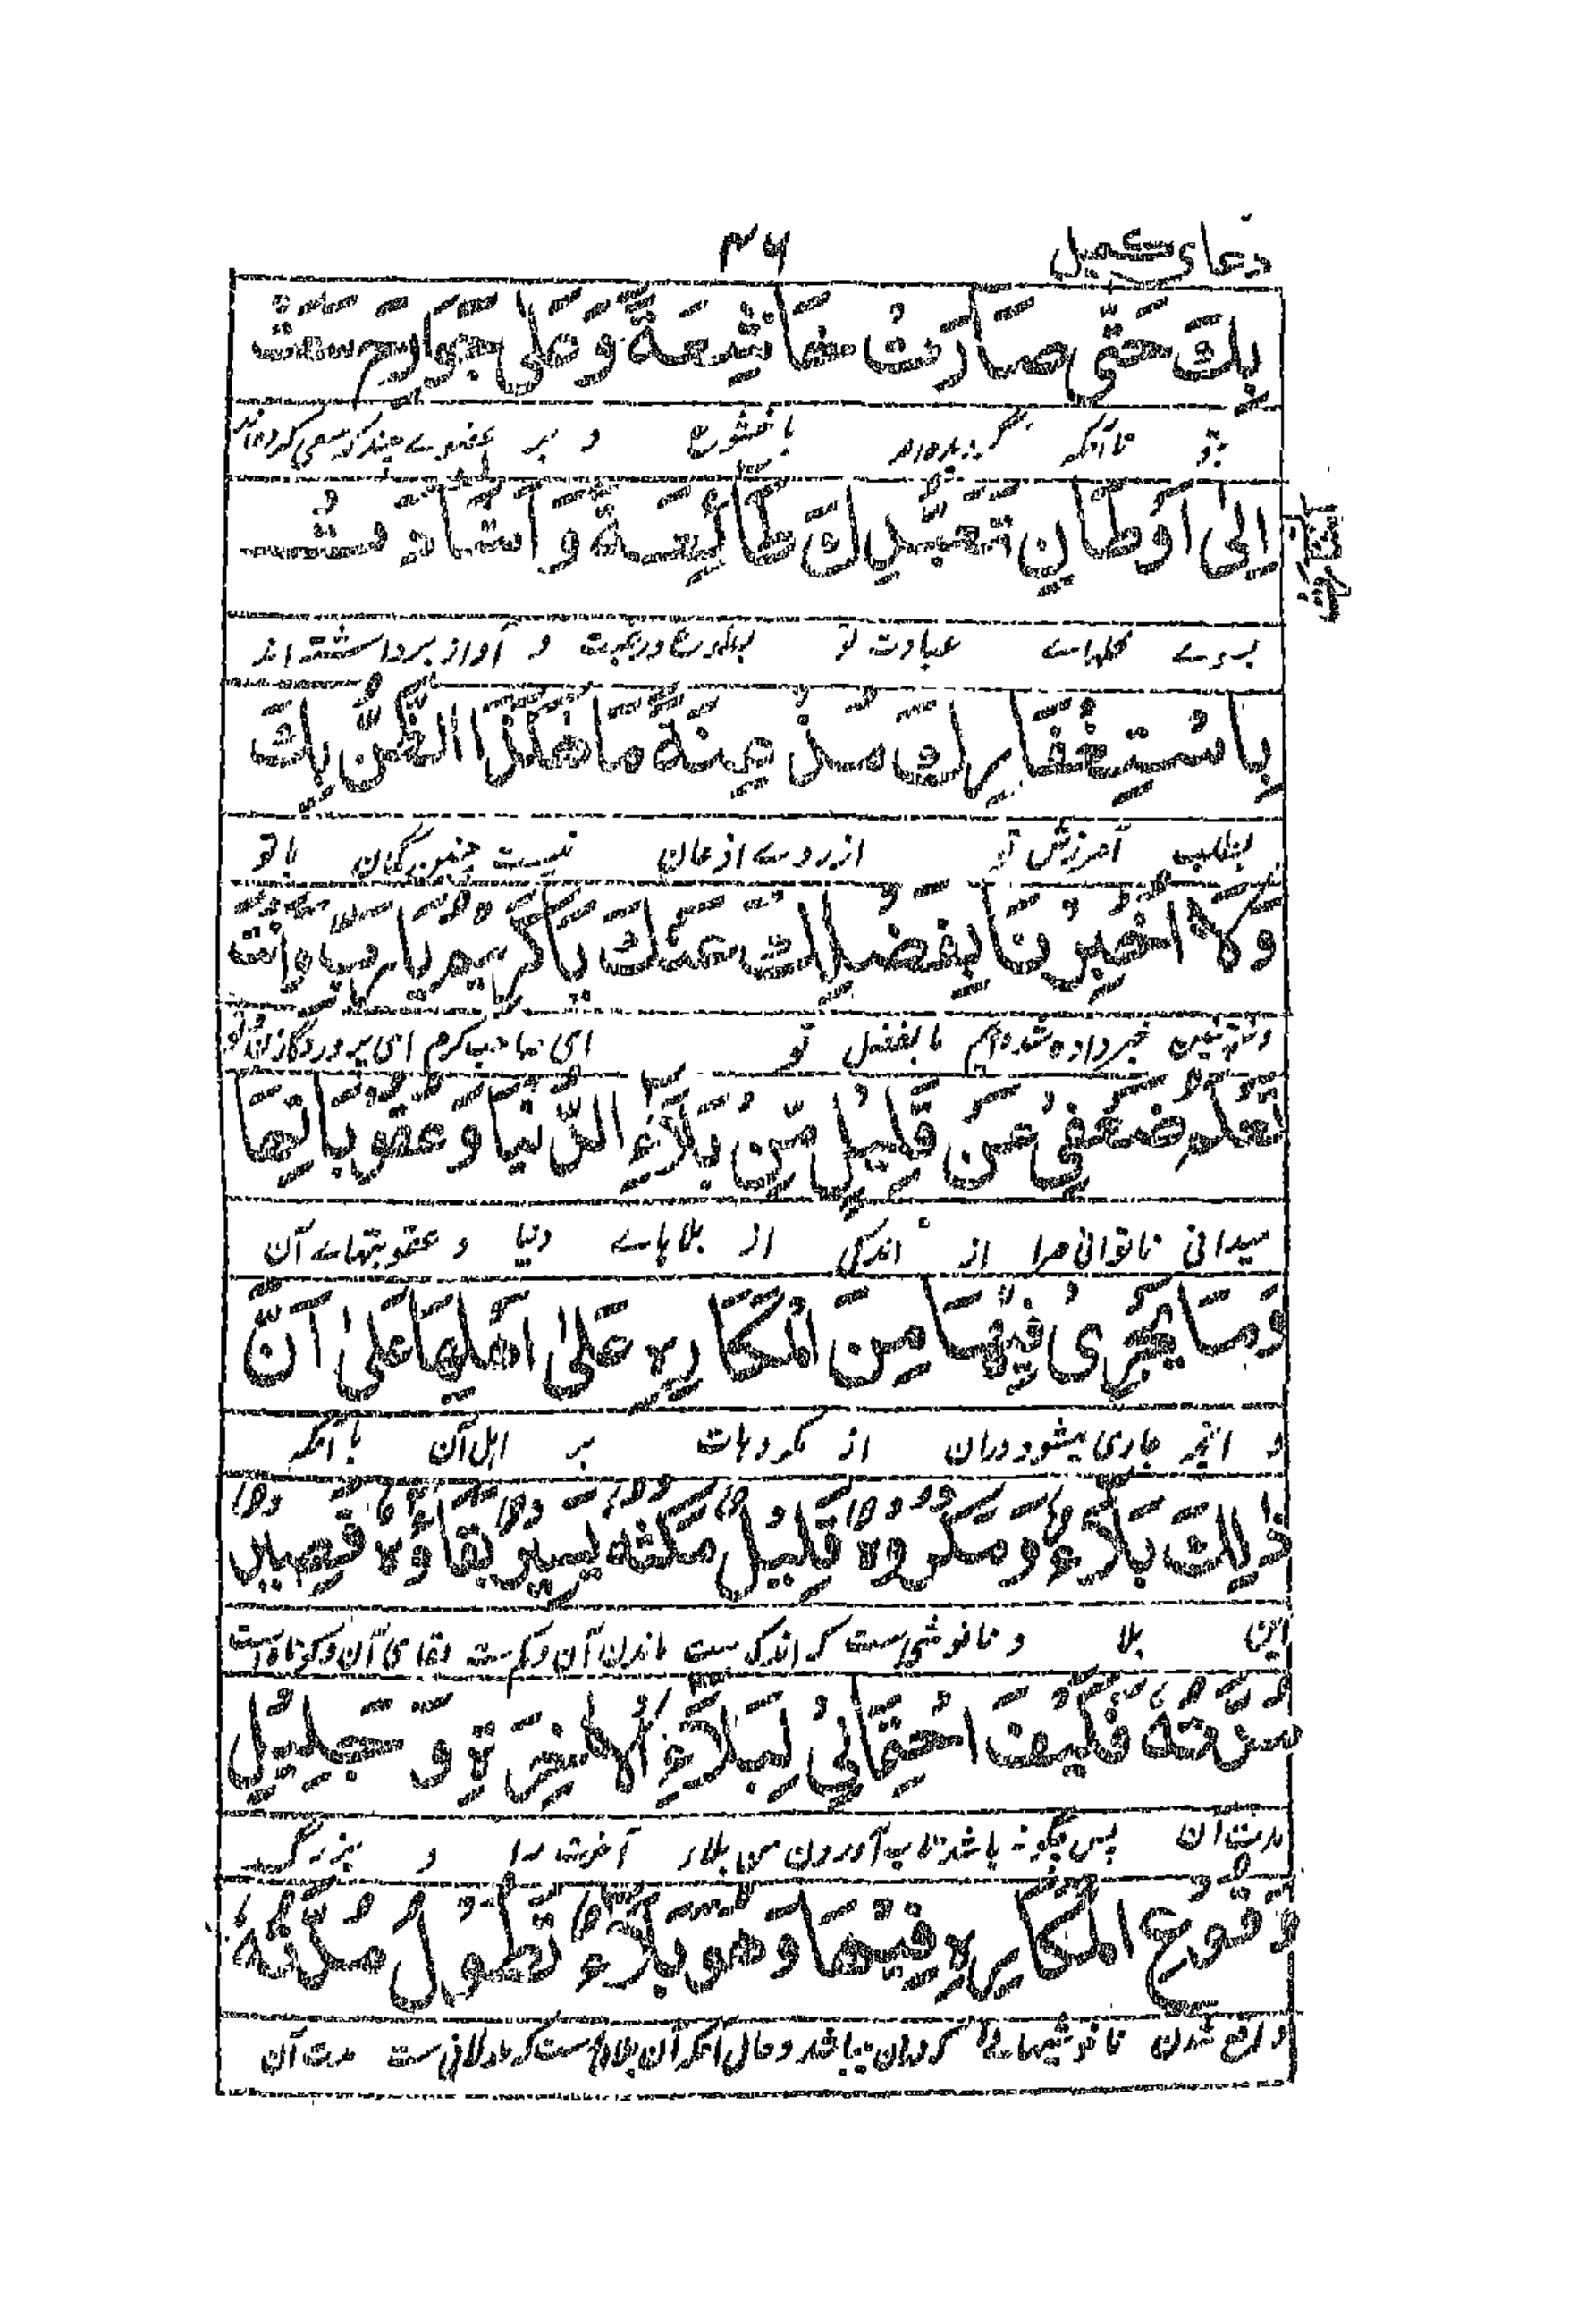 دعای کمیل
۴۶
بِكَ حَتّٰى صَارَتْ خَاشِعَةً وَعَلٰى جَوَارِحَ سَعَتْ
بتو تا آنکه گردیده‌اند با خشوع و بر عضوے چند که سعی کرده‌اند
اِلٰى اَوْطَانِ تَعَبُّدِكَ طَائِعَةً وَ اَشَارَتْ
بسوے محلهاے عبادت تو بطوع و رغبت و آواز برداشته اند
بِاسْتِغْفَارِكَ مُذْعِنَةً مَا هٰكَذَا الظَّنُّ بِكَ
بطلب آمرزش تو از روے اذعان نیست چنین گمان با تو
وَلَا اُخْبِرْنَا بِفَضْلِكَ عَنْكَ يَا كَرِيْمُ يَا رَبِّ وَاَنْتَ
و نه چنین خبر داده شده‌ایم ما بفضل تو ای صاحب کرم ای پروردگار من و تو
تَعْلَمُ ضَعْفِیْ عَنْ قَلِيْلٍ مِّنْ بَلَآءِ الدُّنْيَا وَعُقُوْبَاتِهَا
میدانی ناتوانی مرا از اندکی از بلاهاے دنیا و عقوبتهاے آن
وَمَا يَجْرِیْ فِيْهَا مِنَ الْمَكَارِهِ عَلٰى اَهْلِهَا عَلٰى اَنَّ
و انچه جاری میشود دران از مکروهات بر اہل آن با آنکه
ذٰلِكَ بَلَآءٌ وَ مَكْرُوْهٌ قَلِيْلٌ مَكْثُهٗ يَسِيْرٌ بَقَاؤُهٗ قَصِيْرٌ
این بلا و ناخوشی ست که اندک ست ماندن آن و کم ست بقای آن و کوتاه ست
مُدَّتُهٗ فَكَيْفَ احْتِمَالِیْ لِبَلَآءِ الْاٰخِرَةِ وَ جَلِيْلِ
مدت آن پس چگونه باشد تاب آوردن من بلاء آخرت را و بزرگی
وُقُوْعِ الْمَكَارِهِ فِيْهَا وَهُوَ بَلَآءٌ تَطُوْلُ مُدَّتُهٗ
واقع شدن ناخوشیهاے که دران میباشد و حال انکه آن بلائی ست که طولانی ست مدت آن